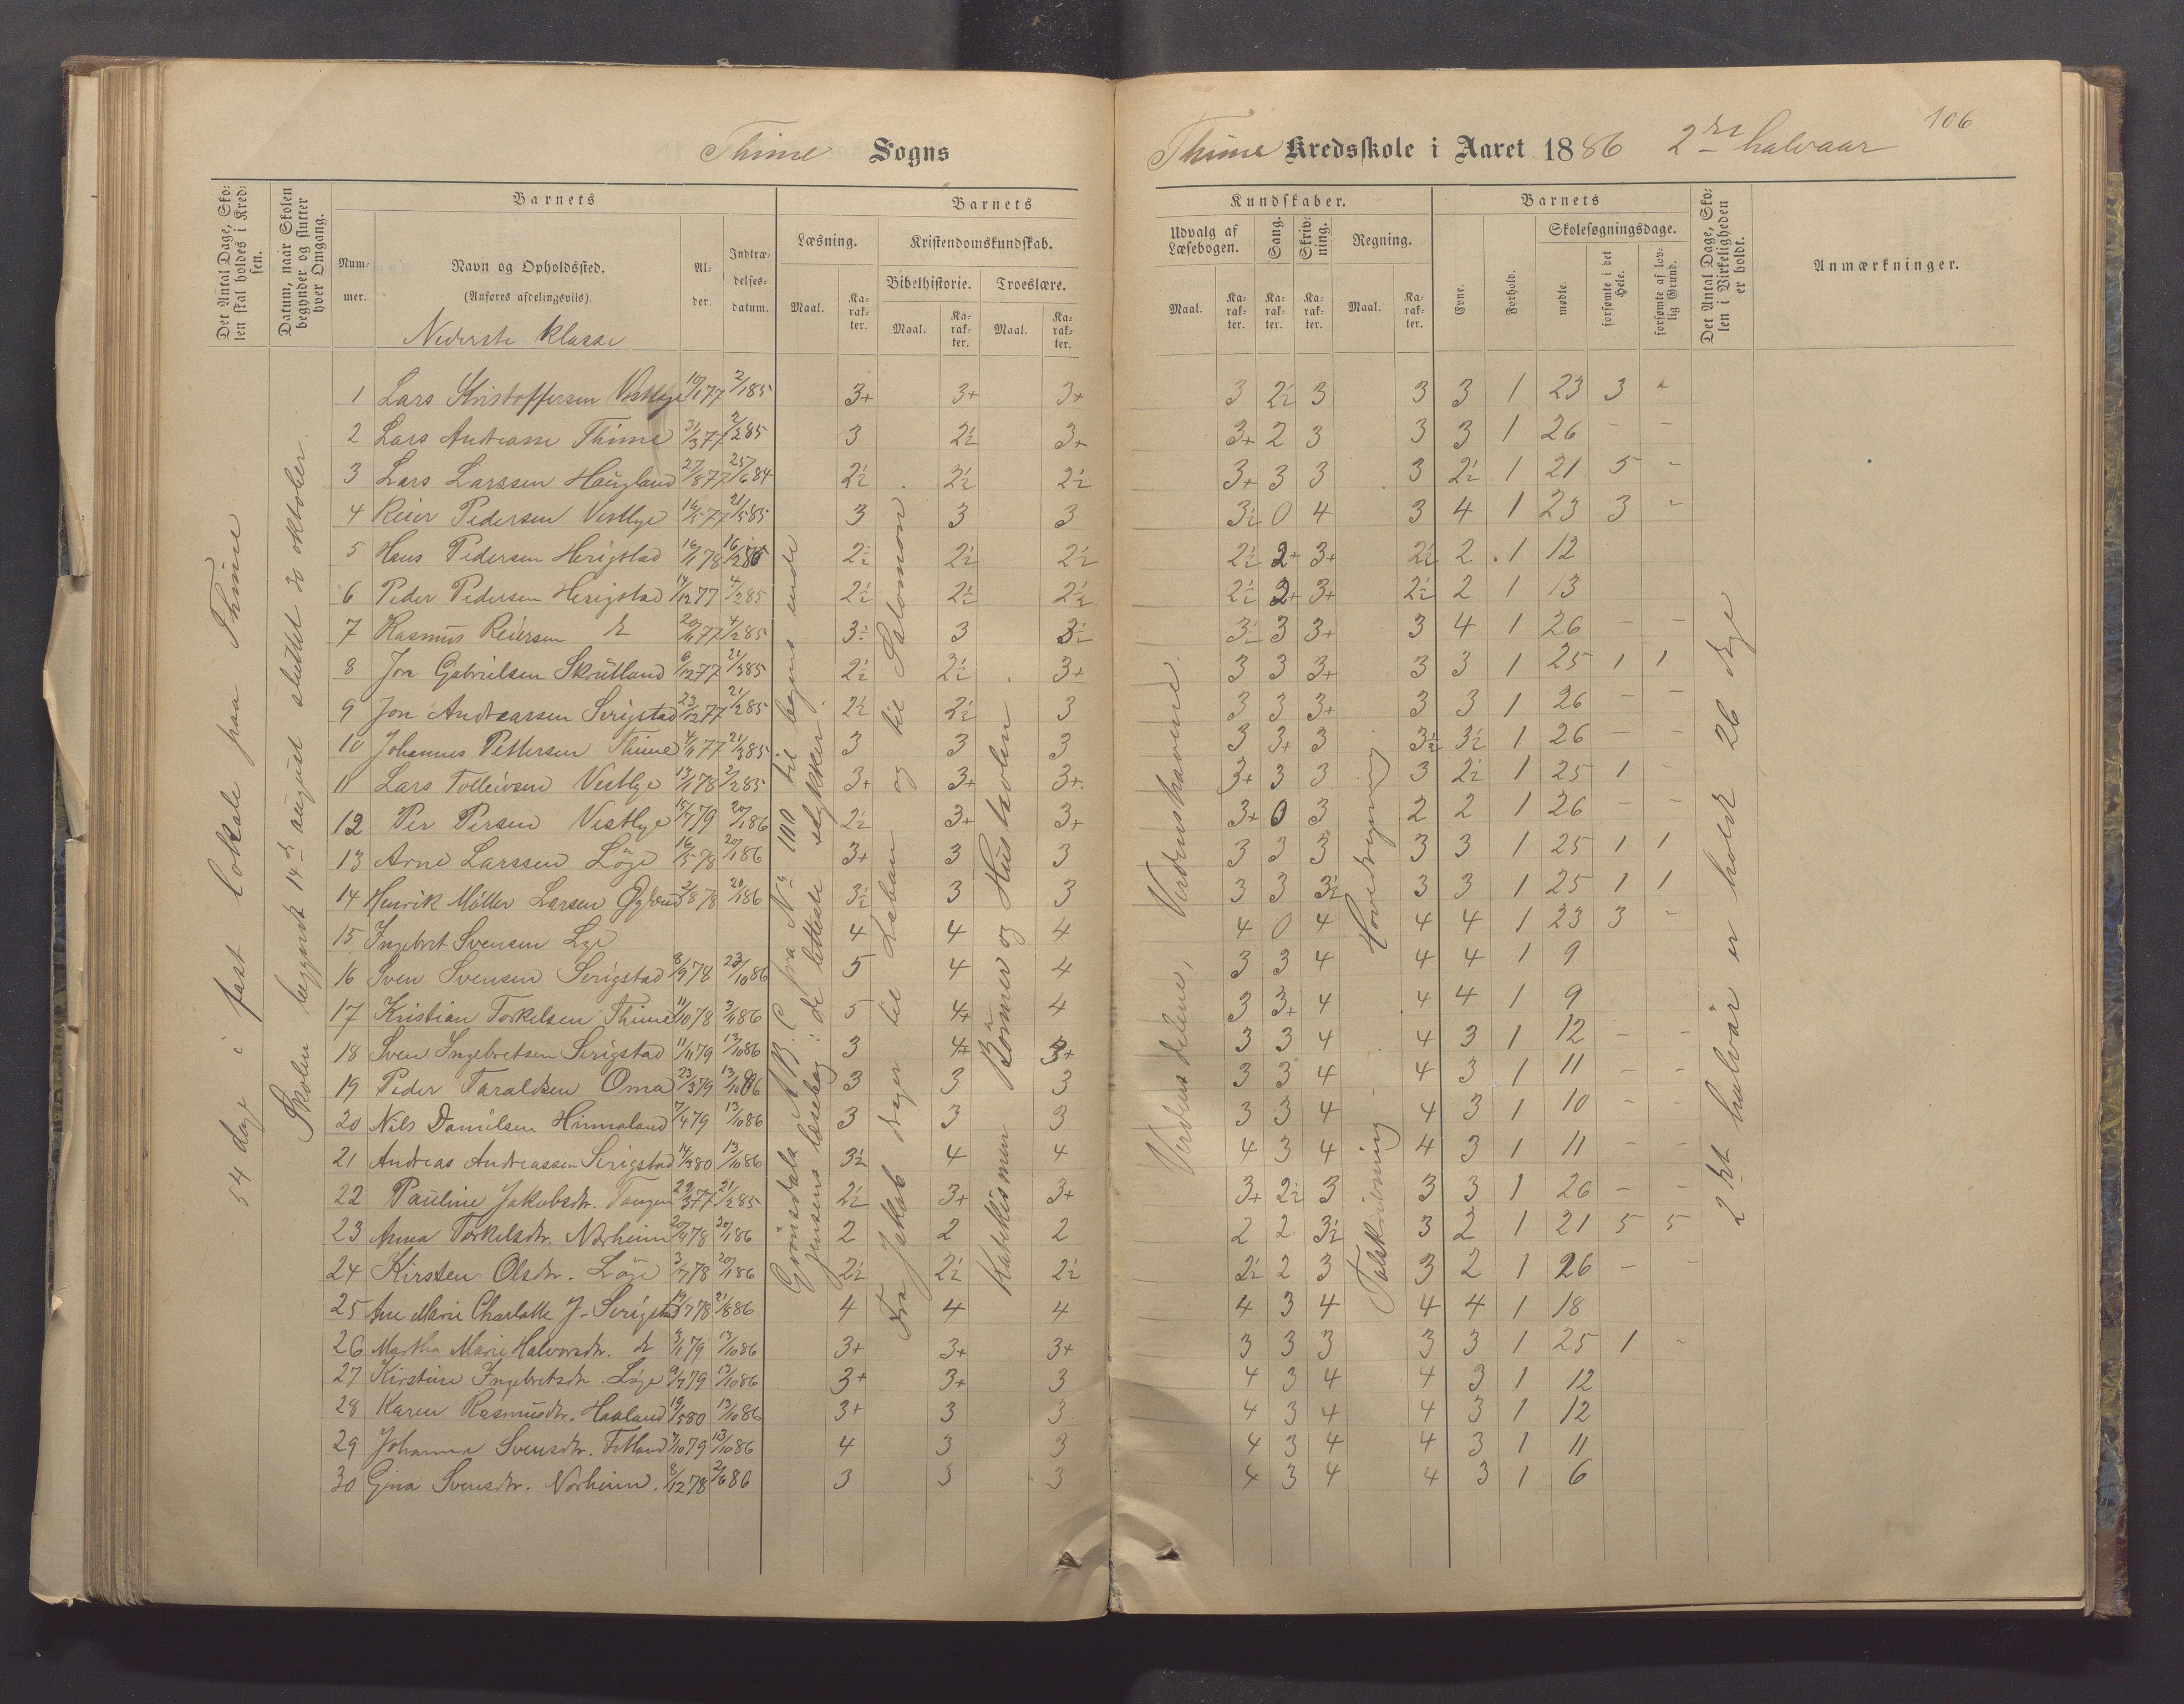 106
Thime Sogns
Thime Kredsskole i Aaret 1886 2det halvaar
Det Antal Dage, Skolen skal holdes i Kredsen.
Datum, naar Skolen begynder og slutter hver Omgang.
Barnets
Nummer.
Navn og Opholdssted.
(Anføres afdelingsviis).
Alder.
Indtrædelsesdatum.
Barnets
Læsning.
Maal.
Karakter.
Kristendomskundskab.
Bibelhistorie.
Maal.
Karakter.
Troeslære.
Maal.
Karakter.
Kundskaber.
Udvalg af Læsebogen.
Maal.
Karakter.
Sang.
Karakter.
Skrivning.
Karakter.
Regning.
Maal.
Karakter.
Barnets
Evne.
Forhold.
Skolesøgningsdage.
mødte.
forsømte i det Hele.
forsømte af lovlig Grund.
Det Antal Dage, Skolen i Virkeligheden er holdt.
Anmærkninger.
Nederste klasse
54 dage i fast lokale paa Thime
Skolen begyndt 14de august sluttet 30 oktober.
Grönsdals A B C fra No 100 til bogens ende
Jensens læsebog: de letteste stykker.
Fra Jakob drager til Laban og til Salomon
Katekismen Bönner og Hustavlen
Verdens delene, Verdenshavene.
Talskrivning Hovedregning.
2det halvår er holdt 26 dage
1 Lars Kristoffersen Vestlye 10/1 77 2/1 85 3+ 3+ 3+ 3 2½ 3 3 3 1 23 3 -
2 Lars Andreasse Thime 31/3 77 2/2 85 3 2½ 3+ 3+ 2 3 3 3 1 26 - -
3 Lars Larssen Haugland 27/8 77 25/6 84 2½ 2½ 2½ 3+ 3 3 3 2½ 1 21 5 -
4 Reier Pedersen Vestlye 16/5 77 21/5 85 3 3 3 3½ 0 4 3 4 1 23 3 -
5 Hans Pedersen Herigstad 16/1 78 16/2 86 2½ 2½ 2½ 2½ 2+ 3+ 2½ 2 1 12
6 Peder Pedersen Herigstad 14/12 77 4/2 85 2½ 2½ 2½ 2½ 2+ 3+ 2½ 2 1 13
7 Rasmus Reiersen do 20/11 77 4/2 85 3½ 3 3½ 3½ 3 3+ 3 4 1 26 - -
8 Jon Gabrielsen Skrutland 6/12 77 21/3 85 2½ 2½ 3+ 3 3 3+ 3 3 1 25 1 1
9 Jon Andreassen Serigstad 23/12 77 21/2 85 2½ 2½ 3 3 3 3+ 3 3 1 26 - -
10 Johannes Pettersen Thime 4/11 77 21/3 85 3 3 3 3 3+ 3 3½ 3½ 1 26 - -
11 Lars Tolleivsen Vestlye 13/1 78 2/2 85 3+ 3+ 3+ 3+ 3 3 3 2½ 1 25 1 -
12 Per Persen Vestlye 15/7 79 20/1 86 2½ 3+ 3+ 3+ 0 3 2 2 1 26 - -
13 Arne Larssen Löge 16/5 78 20/1 86 3+ 3 3 3 3 3 3 3 1 25 1 1
14 Henrik Möller Larsen 2/8 78 20/1 86 3½ 3 3 3 3 3½ 3 3 1 25 1 1
15 Ingebret Svensen Lye 4 4 4 4 0 4 4 4 1 23 3 -
16 Sven Svensen Serigstad 8/9 78 23/10 86 5 4 4 3 3 4 4 4 1 9
17 Kristian Torkelsen Thime 11/10 78 3/11 86 5 4+ 4 3 3+ 4 4 4 1 9
18 Sven Ingebretsen Serigstad 11/11 79 13/10 86 3 4+ 3+ 3 3 4 4 3 1 12 - -
19 Peder Taraldsen Oma 23/3 79 13/10 86 3 3 3 3 3 4 4 3 1 11 - -
20 Nils Danielsen Hinnaland 7/4 79 13/10 86 3 3 3 3 3 4 4 3 1 10 - -
21 Andreas Andreassen Serigstad 14/3 80 13/10 86 3½ 4 4 4 3 4 4 3 1 11 - -
22 Pauline Jakobsdtr. Tangen 29/3 77 21/2 85 2½ 3+ 3+ 3+ 2½ 3 3 3 1 26 - -
23 Anna Torkelsdtr. Norheim 20/9 78 20/1 86 2 2 2 2 2 3½ 3 2 1 21 5 5
24 Kirsten Olsdtr. Löge 3/7 78 20/1 86 2½ 2½ 2½ 2½ 2 3 3 2 1 26 - -
25 Ane Marie Charlotte J. Serigstad 19/7 78 21/8 86 4 4 4 4 3 4 4 4 1 18
26 Martha Marie Halvorsdtr. do 3/11 79 13/10 86 3+ 3+ 3+ 3 3 3 3 3 1 25 1 -
27 Kirstine Ingebretsdtr. Löge 9/7 79 13/10 86 3+ 3+ 3 4 3 4 4 3 1 12
28 Karen Rasmusdtr. Haaland 19/5 80 13/10 86 3+ 3 3 4 3 4 4 3 1 12
29 Johanna Svensdtr. Fotland 7/10 79 13/10 86 4 3 3 4 3 4 4 3 1 11
30 Gina Svensdtr. Norheim. 8/12 78 2/6 86 3 3 3 4 3 4 4 3 1 6